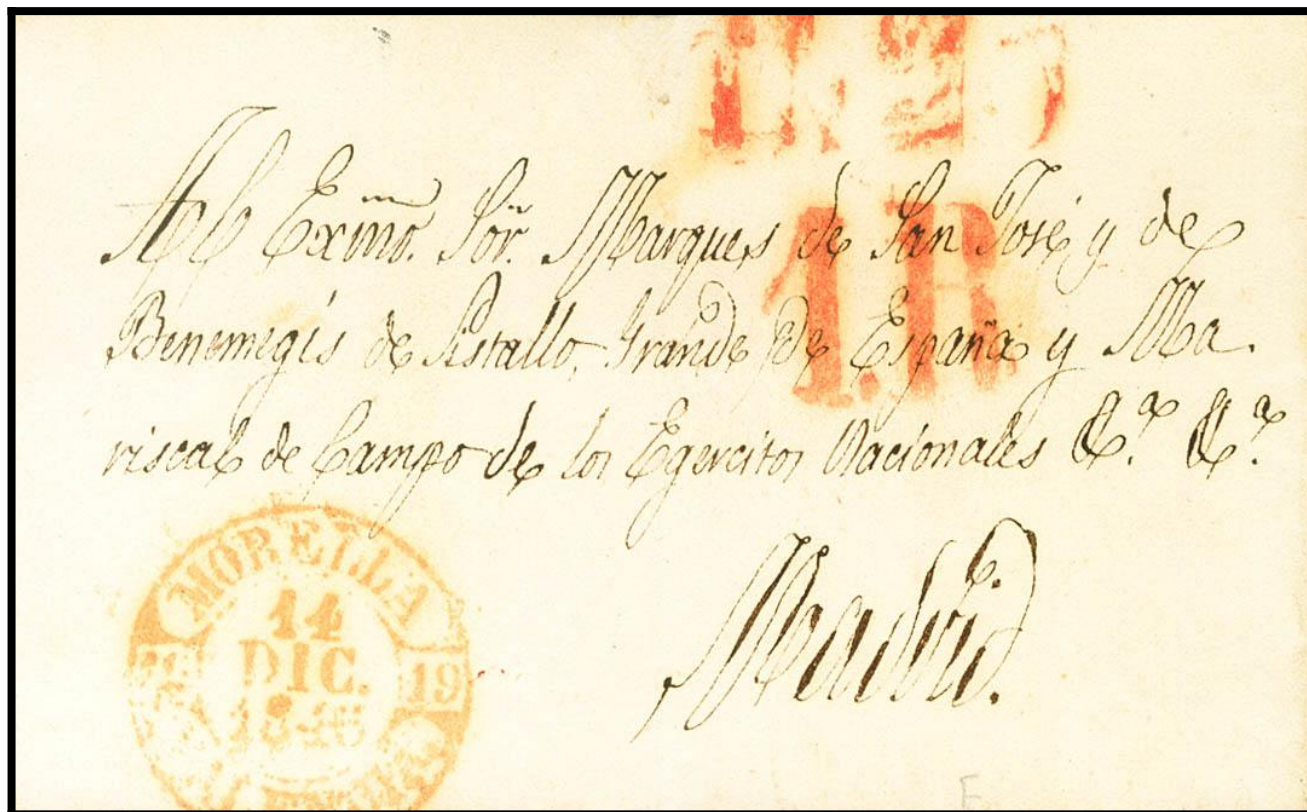 1.R
Al Exmo. Sor. Marques de San José y de
Benemegis de Sistallo, Grande de España y Ma.
riscal de Campo de los Egercitos Nacionales &.a &.a
Madrid.
MORELLA
14
DIC.
19